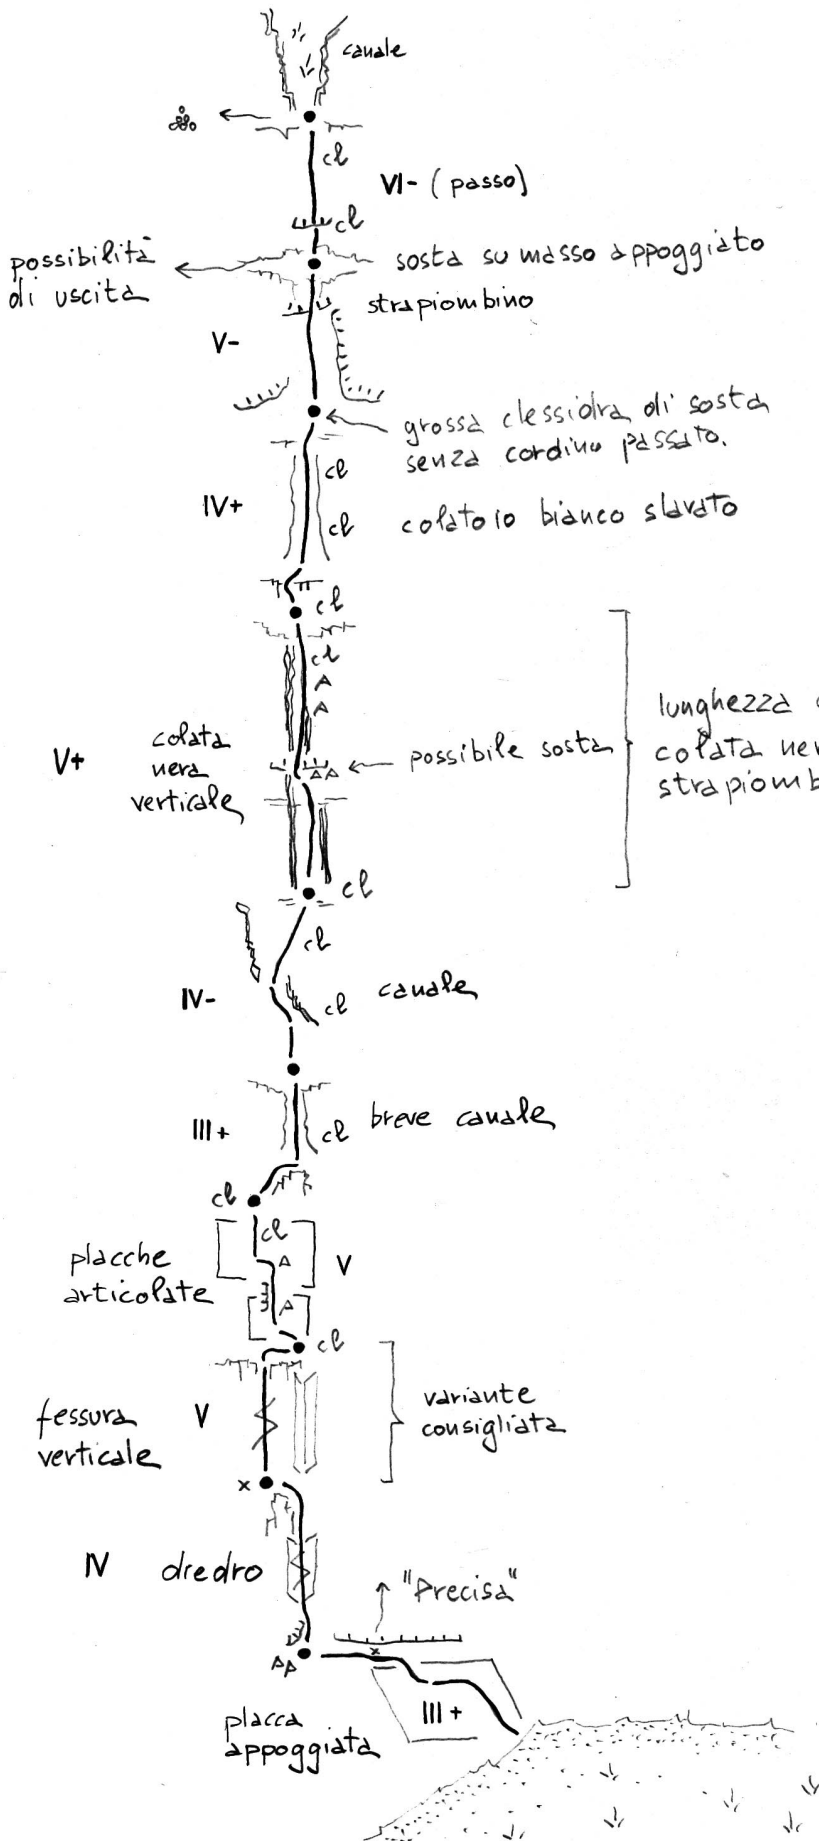 canale
cl
VI- (passo)
cl
possibilità
di uscita
sosta su masso appoggiato
strapiombino
V-
grossa clessidra di sosta
senza cordino passato.
cl
IV+
cl
colatoio bianco slavato
cl
cl
A
A
V+
colata
nera
verticale
AA
possibile sosta
lunghezza
colata
cl
cl
IV-
cl
canale
III+
cl
breve canale
cl
cl
placche
articolate
A
V
A
cl
fessura
verticale
V
variante
consigliata
x
IV
diedro
"Precisa"
x
AA
III+
placca
appoggiata